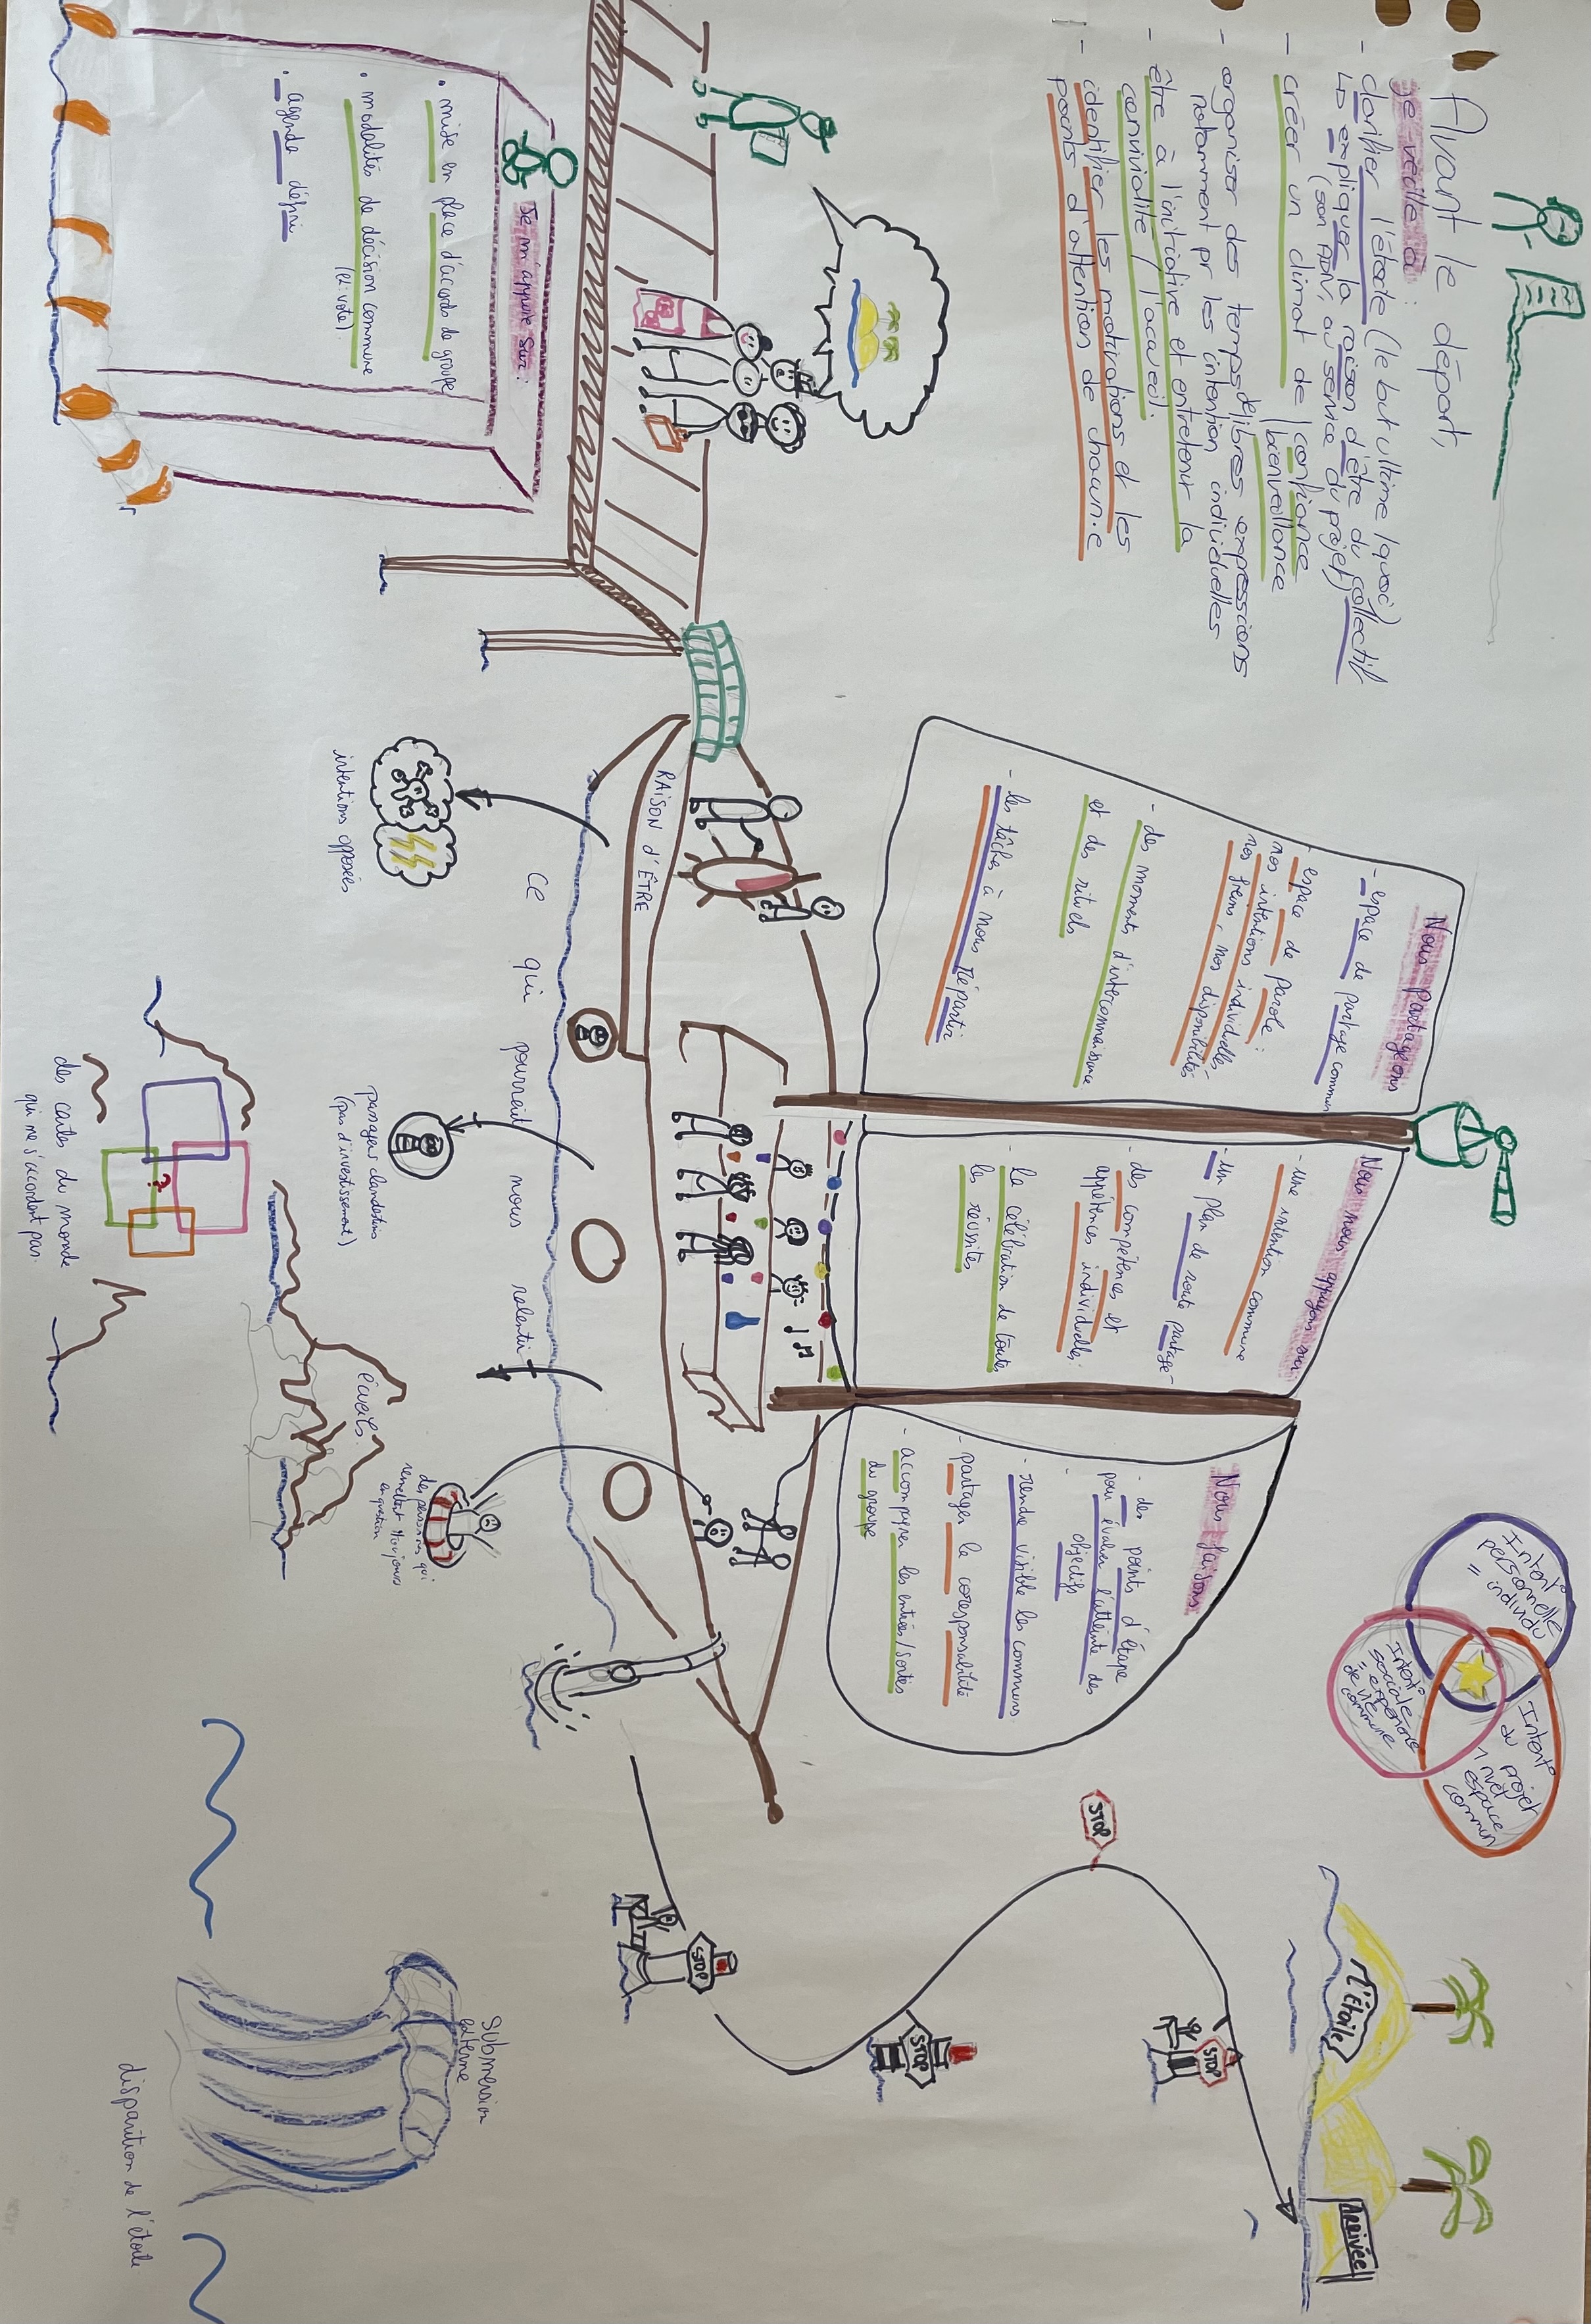 Avant le départ,
je veille à :
- clarifier l'étoile (le but ultime (quoi)
↳ expliquer la raison d'être du collectif
(son ADN, au service du projet)
- créer un climat de confiance
bienveillance
- organiser des temps de libres expressions
notamment pr les intention individuelles
- être à l'initiative et entretenir la
convivialité / l'accueil.
- identifier les motivations et les
points d'attention de chacun.e
Je m'appuie sur :
• mise en place d'accords de groupe
• modalités de décision commune
(ex: vote)
• agenda défini
Nous partageons
- espace de partage commun
- espace de parole :
nos intentions individuelles,
nos freins, nos disponibilités
- des moments d'interconnaissance
et des rituels
- les tâches à nous répartir
Nous nous appuyons sur
- une intention commune
- un plan de route partagé
- des compétences et
appétences individuelles
- la célébration de toutes
les réussites
Nous faisons
- des points d'étape
pour évaluer l'atteinte des
objectifs
- rendre visible les communs
- partager la coresponsabilité
- accompagner les entrées/sorties
du groupe
Intent° personnelle
= individu
Intent° sociale
= expérience
de vie
commune
Intent°
du projet
1 nvel
espace
commun
RAISON D'ÊTRE
Ce qui pourrait nous ralentir
intentions opposées
passager clandestin
(pas d'investissement)
des personnes qui
remettent toujours
en question
écueils
des cartes du monde
qui ne s'accordent pas
?
STOP
STOP
STOP
STOP
L'Étoile
Arrivée
Submersion
externe
disparition de l'étoile